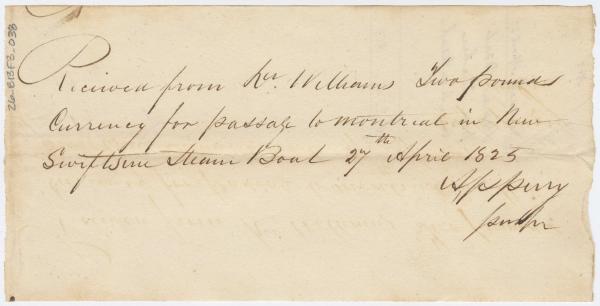 Received from Mr Williams Two pounds
Currency for passage to montreal in New
Swiftsure Steam Boat 27th April 1825
Perry
purser
26-B13F3-038